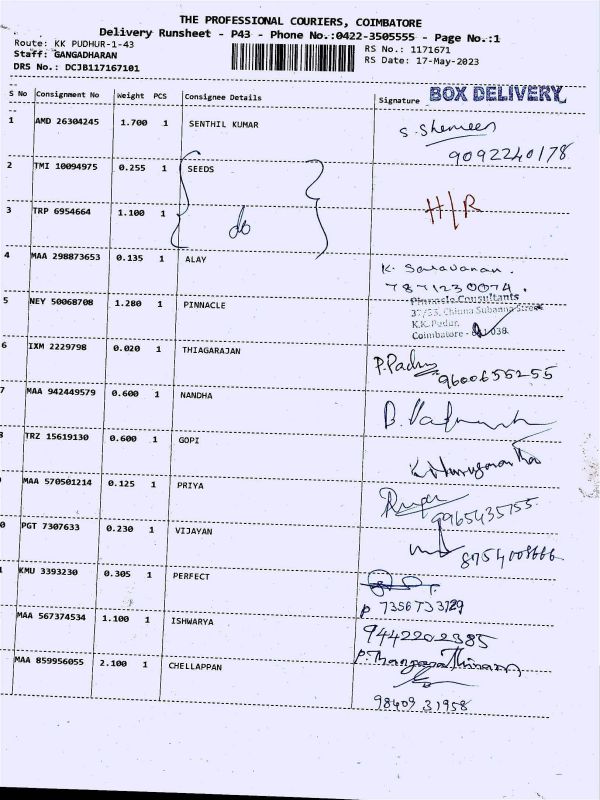 THE PROFESSIONAL COURIERS, COIMBATORE
Delivery Runsheet - P43 - Phone No.:0422-3505555 - Page No.:1
Route: KK PUDHUR-1-43 RS No.: 1171671
Staff: GANGADHARAN RS Date: 17-May-2023
DRS No.: DCJB117167101
S No Consignment No Weight PCS Consignee Details Signature BOX DELIVERY
1 AMD 26304245 1.700 1 SENTHIL KUMAR S.
9092240178
2 TMI 10094975 0.255 1 SEEDS
H/R
3 TRP 6954664 1.100 1 do
4 MAA 298873653 0.135 1 ALAY K. Saravanan.
7871230074.
5 NEY 50068708 1.280 1 PINNACLE Pinnacle Consultants
37/35, Chinna Subanna Street
K.K. Pudur,
Coimbatore - 641 038.
6 IXM 2229798 0.020 1 THIAGARAJAN
9600655255
7 MAA 942449579 0.600 1 NANDHA
TRZ 15619130 0.600 1 GOPI
MAA 570501214 0.125 1 PRIYA
9965435755
0 PGT 7307633 0.230 1 VIJAYAN
8754008666
KMU 3393230 0.305 1 PERFECT
P 7356733729
MAA 567374534 1.100 1 ISHWARYA 9442202385
MAA 859956055 2.100 1 CHELLAPPAN
98409 31958